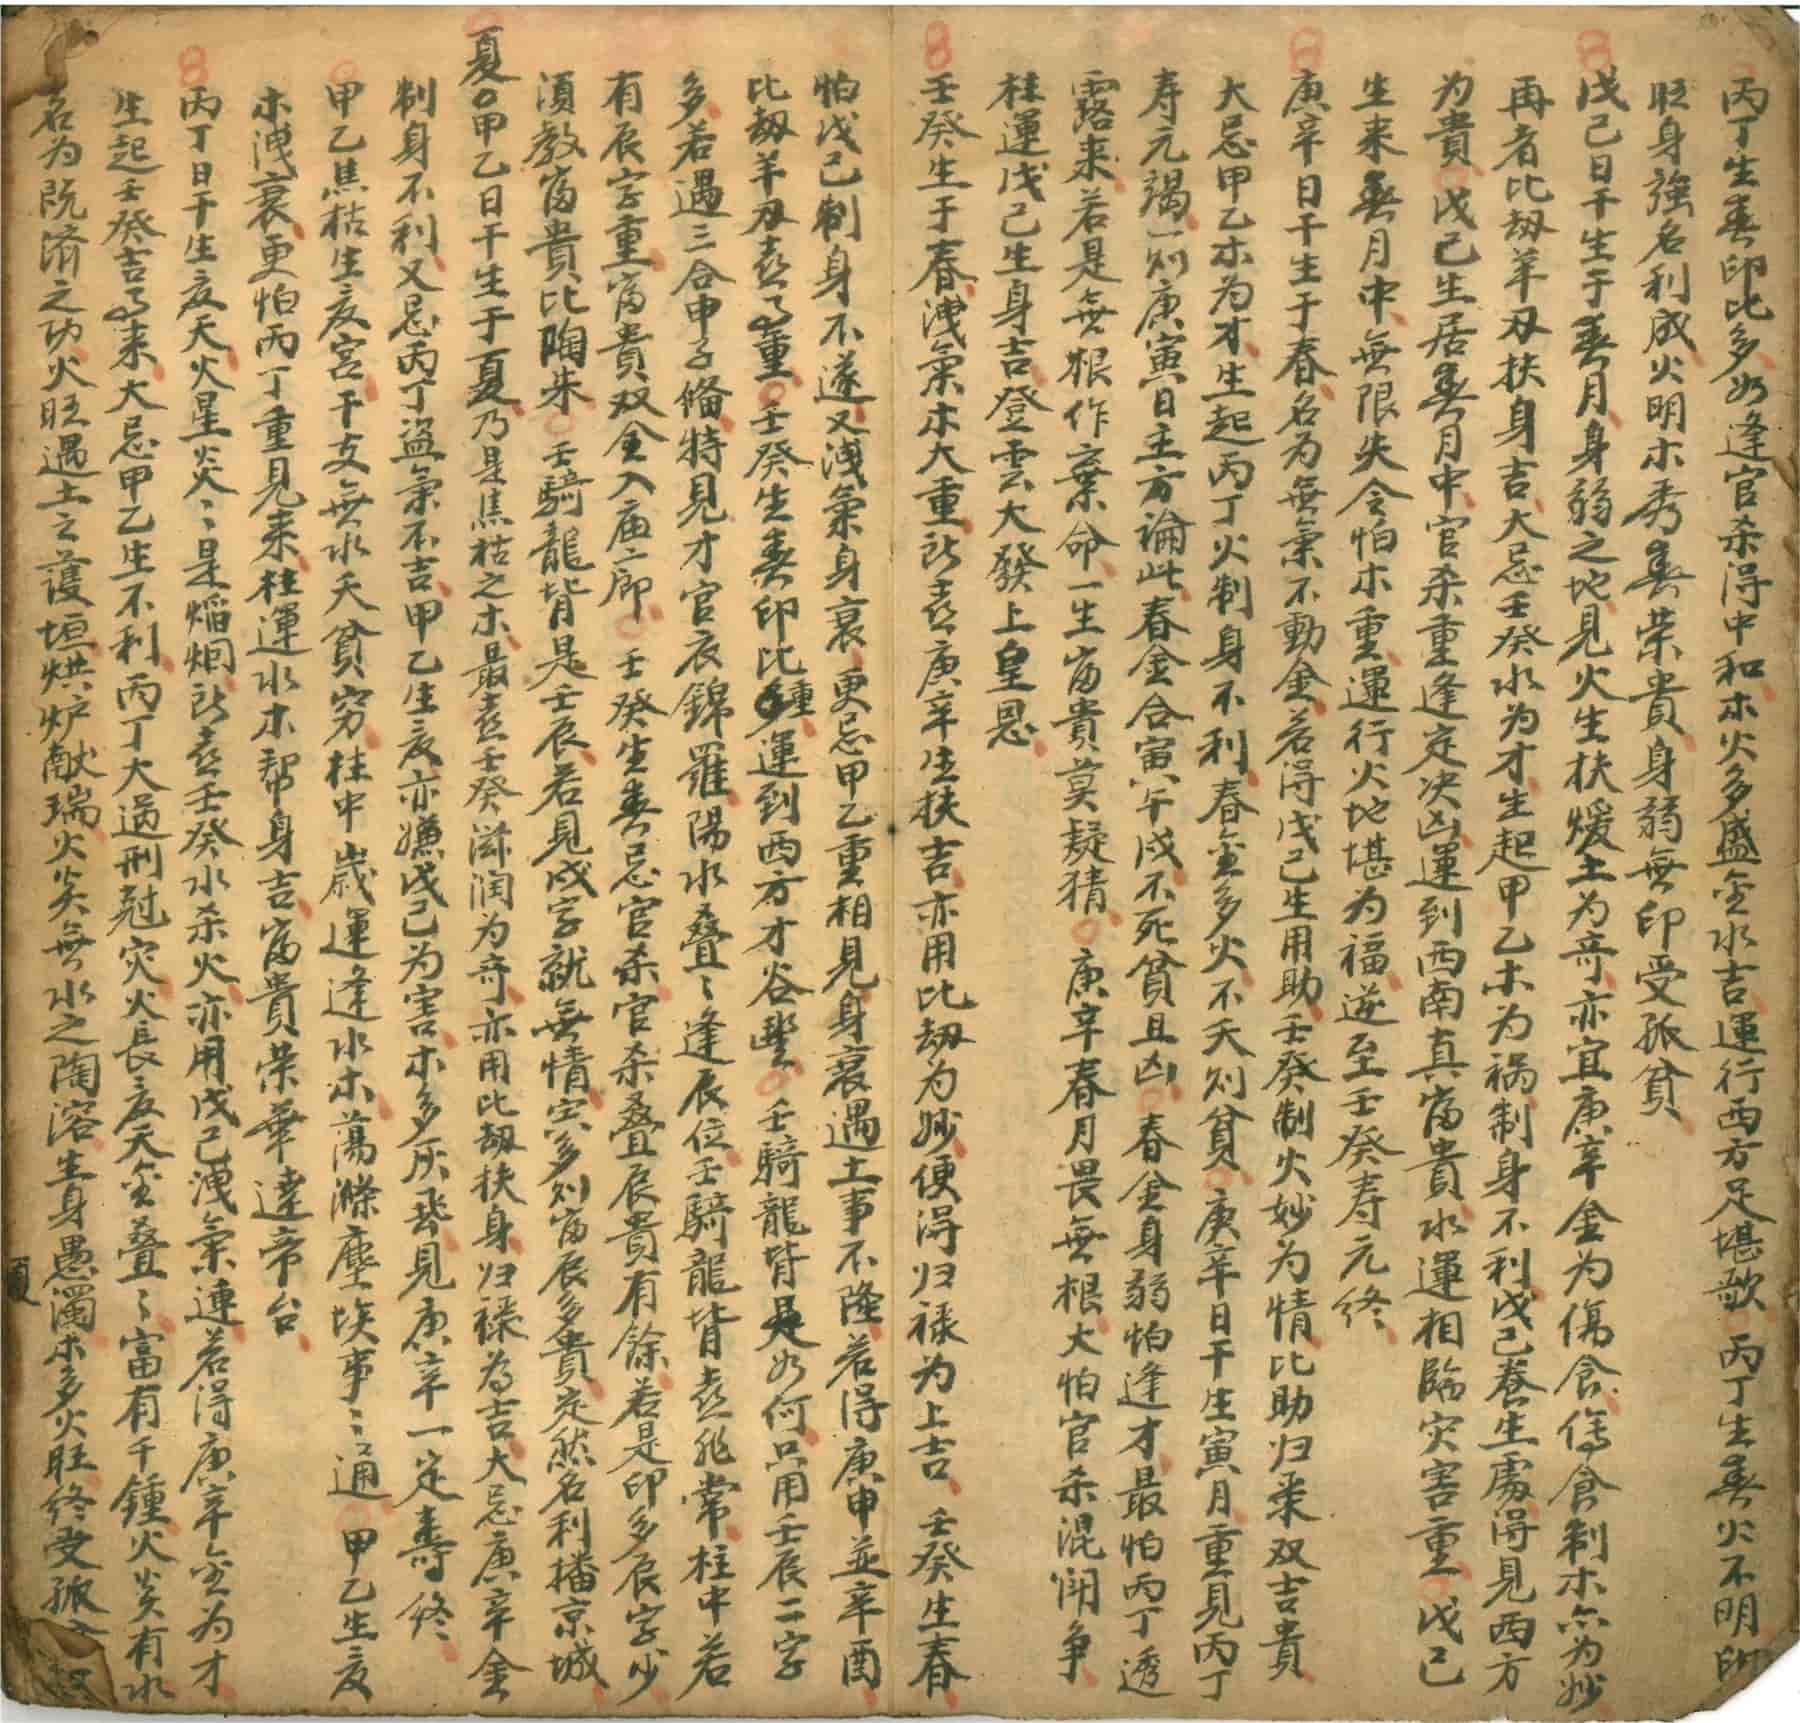 丙丁生春印比多如逢官杀得中和木火多盛金水吉運行西方足堪歌 丙丁生春火不明印
旺身強名利成火明木秀春荣貴身弱無印受孤貧
戊己日干生于春月身弱之地見火生扶煖土为奇亦宜庚辛金为傷食傷食制木亦为妙
再者比刼羊刃扶身吉大忌壬癸水为才生起甲乙木为祸制身不利戊己春生處得見西方
为貴 戊己生居春月中官杀重逢定决凶運到西南真富貴水運相臨灾害重 戊己
生来春月中無限失令怕木重運行火地堪为福逆至壬癸寿元终
庚辛日干生于春名为無氣不動金若得戊己生用助壬癸制火妙为情比助归来双吉貴
大忌甲乙木为才生起丙丁火制身不利春金多火不夭则貧 庚辛日干生寅月重見丙丁
寿元竭一则庚寅日主方論此春金合寅午戌不死貧且凶 春金身弱怕逢才最怕丙丁透
露来若是無根作棄命一生富貴莫疑猜 庚辛春月畏無根大怕官杀混闲争
柱運戊己生身吉登雲大發上皇恩
壬癸生于春洩氣木大重所喜庚辛生扶吉亦用比刼为妙便得归禄为上吉 壬癸生春
怕戊己制身不遂又洩氣身衰更忌甲乙重相見身衰遇土事不隆若得庚申並辛酉
比刼羊刃喜了重 壬癸生春印比鍾運到西方才谷豐 壬騎龍背是如何只用壬辰二字
多若遇三合申子備特見才官衣錦羅陽水叠〻逢辰位壬騎龍背喜非常柱中若
有辰字重富貴双全入庙廊 壬癸生春忌官杀官杀叠辰貴有餘若是印多辰字少
須教富貴比陶朱 壬騎龍背是壬辰若見戌字就無情寅多则富辰多貴定然名利播京城
夏 甲乙日干生于夏乃是焦枯之木最喜壬癸滋润为奇亦用比刼扶身归禄為吉大忌庚辛金
制身不利又忌丙丁盗氣不吉甲乙生夏亦嫌戊己为害木多灰飛見庚辛一定寿终
甲乙焦枯生夏宫干支無水夭貧穷柱中歲運逢水木蕩滌塵埃事〻通 甲乙生夏
木洩衰更怕丙丁重見来柱運水木帮身吉富貴荣華達帝台
丙丁日干生夏天火星炎〻是焰烟所喜壬癸水杀火亦用戊己洩氣連若得庚辛金为才
生起壬癸吉了来大忌甲乙生不利丙丁大過刑尅灾火長夏天金叠〻富有千鍾火炎有水
名为既济之功火旺遇土之護垣烘炉献瑞火炎無水之陶溶生身愚濁木多火旺终受孤